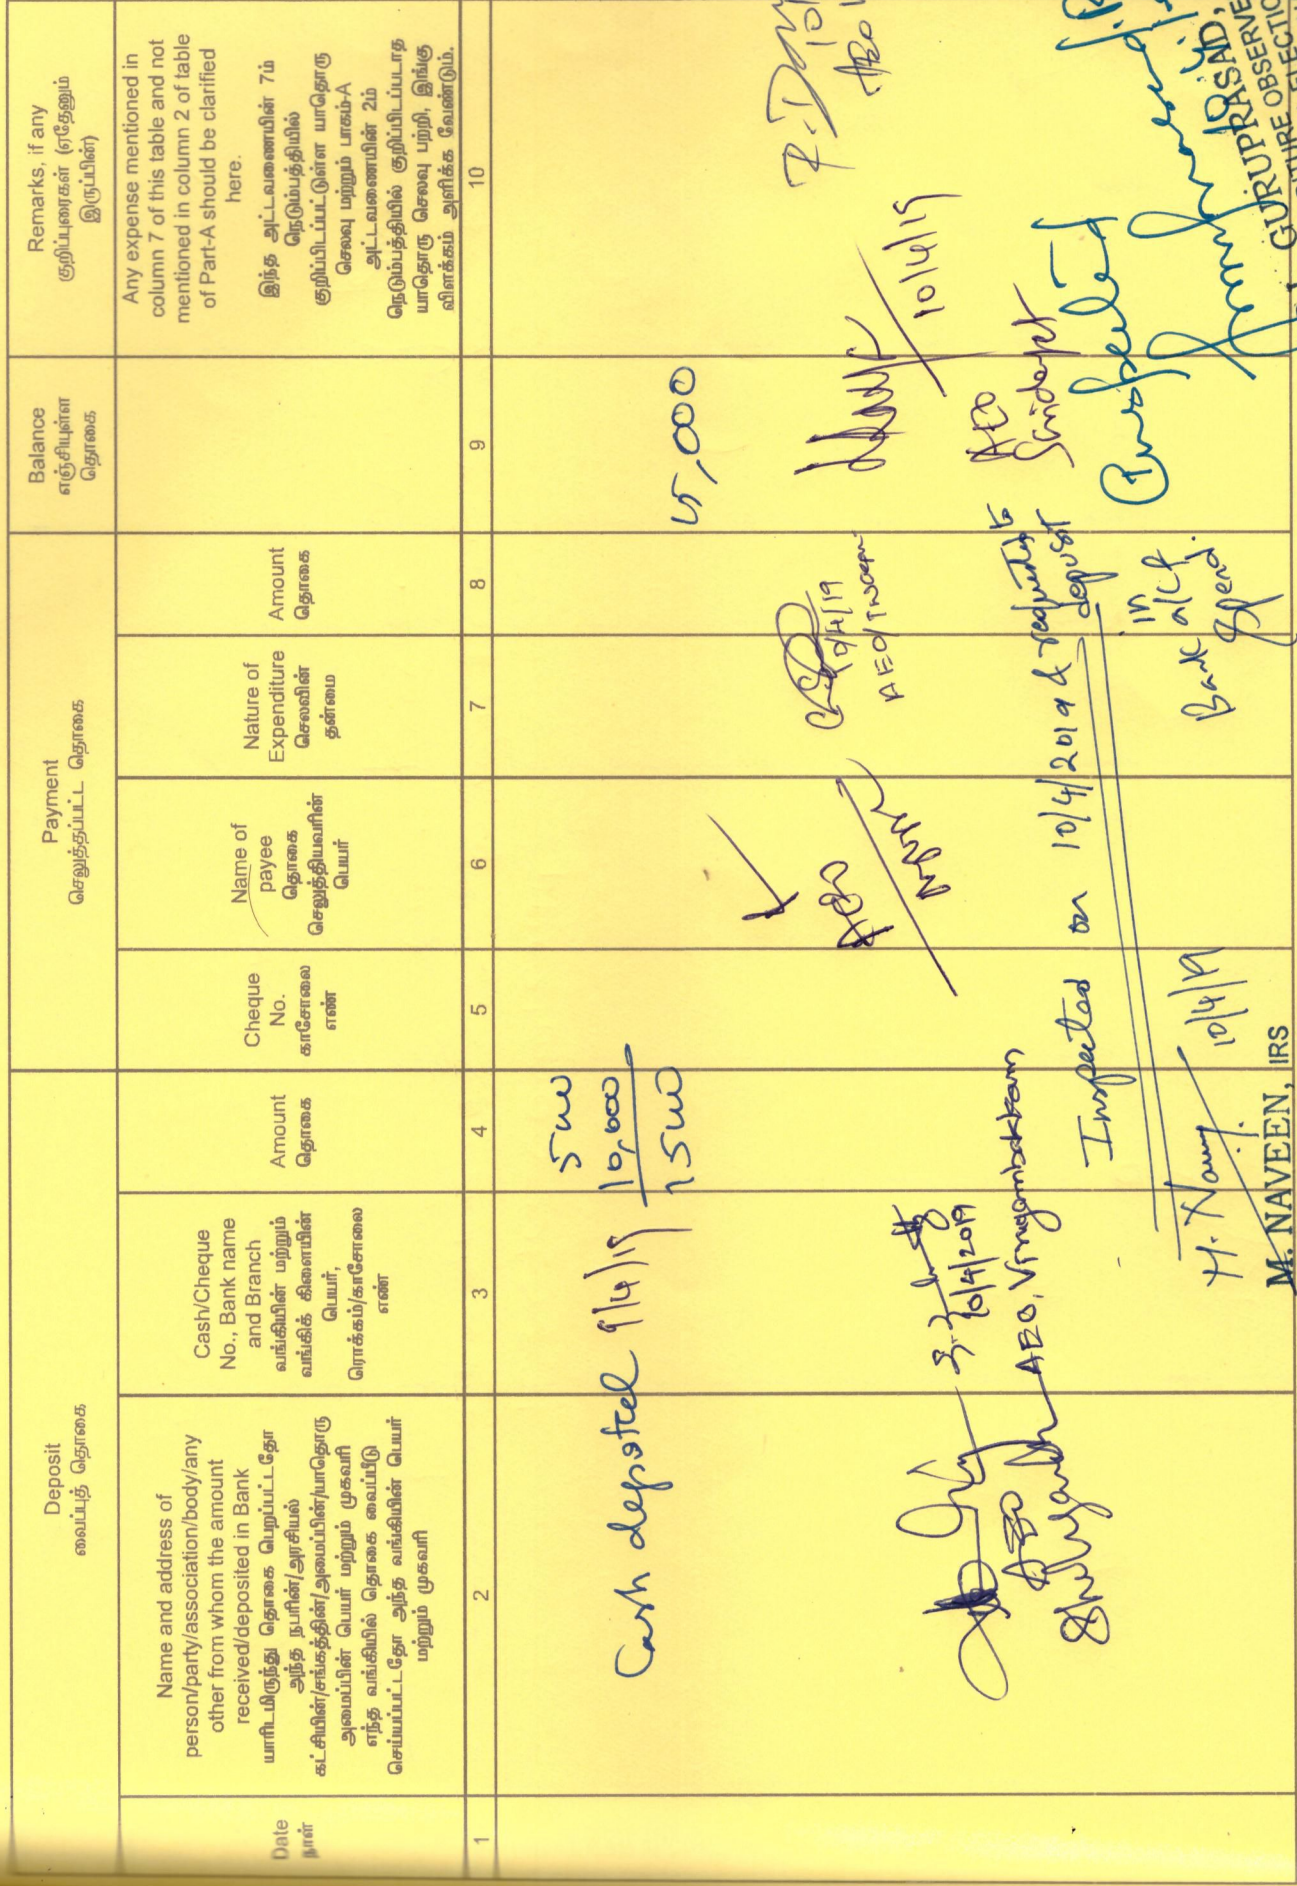 Deposit
வைப்புத் தொகை
Payment
செலுத்தப்பட்ட தொகை
Balance
எஞ்சியுள்ள
தொகை
Remarks, if any
குறிப்புரைகள் (ஏதேனும்
இருப்பின்)
Date
நாள்
Name and address of
person/party/association/body/any
other from whom the amount
received/deposited in Bank
யாரிடமிருந்து தொகை பெறப்பட்டதோ
அந்த நபரின்/அரசியல்
கட்சியின்/சங்கத்தின்/அமைப்பின்/யாதொரு
அமைப்பின் பெயர் மற்றும் முகவரி
எந்த வங்கியில் தொகை வைப்பீடு
செய்யப்பட்டதோ அந்த வங்கியின் பெயர்
மற்றும் முகவரி
Cash/Cheque
No., Bank name
and Branch
வங்கியின் மற்றும்
வங்கிக் கிளையின்
பெயர்,
ரொக்கம்/காசோலை
எண்
Amount
தொகை
Cheque
No.
காசோலை
எண்
Name of
payee
தொகை
செலுத்தியவரின்
பெயர்
Nature of
Expenditure
செலவின்
தன்மை
Amount
தொகை
Any expense mentioned in
column 7 of this table and not
mentioned in column 2 of table
of Part-A should be clarified
here.
இந்த அட்டவணையின் 7ம்
நெடும்பத்தியில்
குறிப்பிடப்பட்டுள்ள யாதொரு
செலவு மற்றும் பாகம்-A
அட்டவணையின் 2ம்
நெடும்பத்தியில் குறிப்பிடப்படாத
யாதொரு செலவு பற்றி, இங்கு
விளக்கம் அளிக்க வேண்டும்.
1 2 3 4 5 6 7 8 9 10
Cash deposited 9/4/19
10,000
15,000
10/4/19
AEO
10/4/19
AEO
10/4/2019
AEO, Virugambakkam
AEO
AEO
Inspected on 10/4/2019 & requested to
deposit
in
Bank a/c &
Spend.
Inspected
10/4/19
M. NAVEEN, IRS
GURUPRASAD,